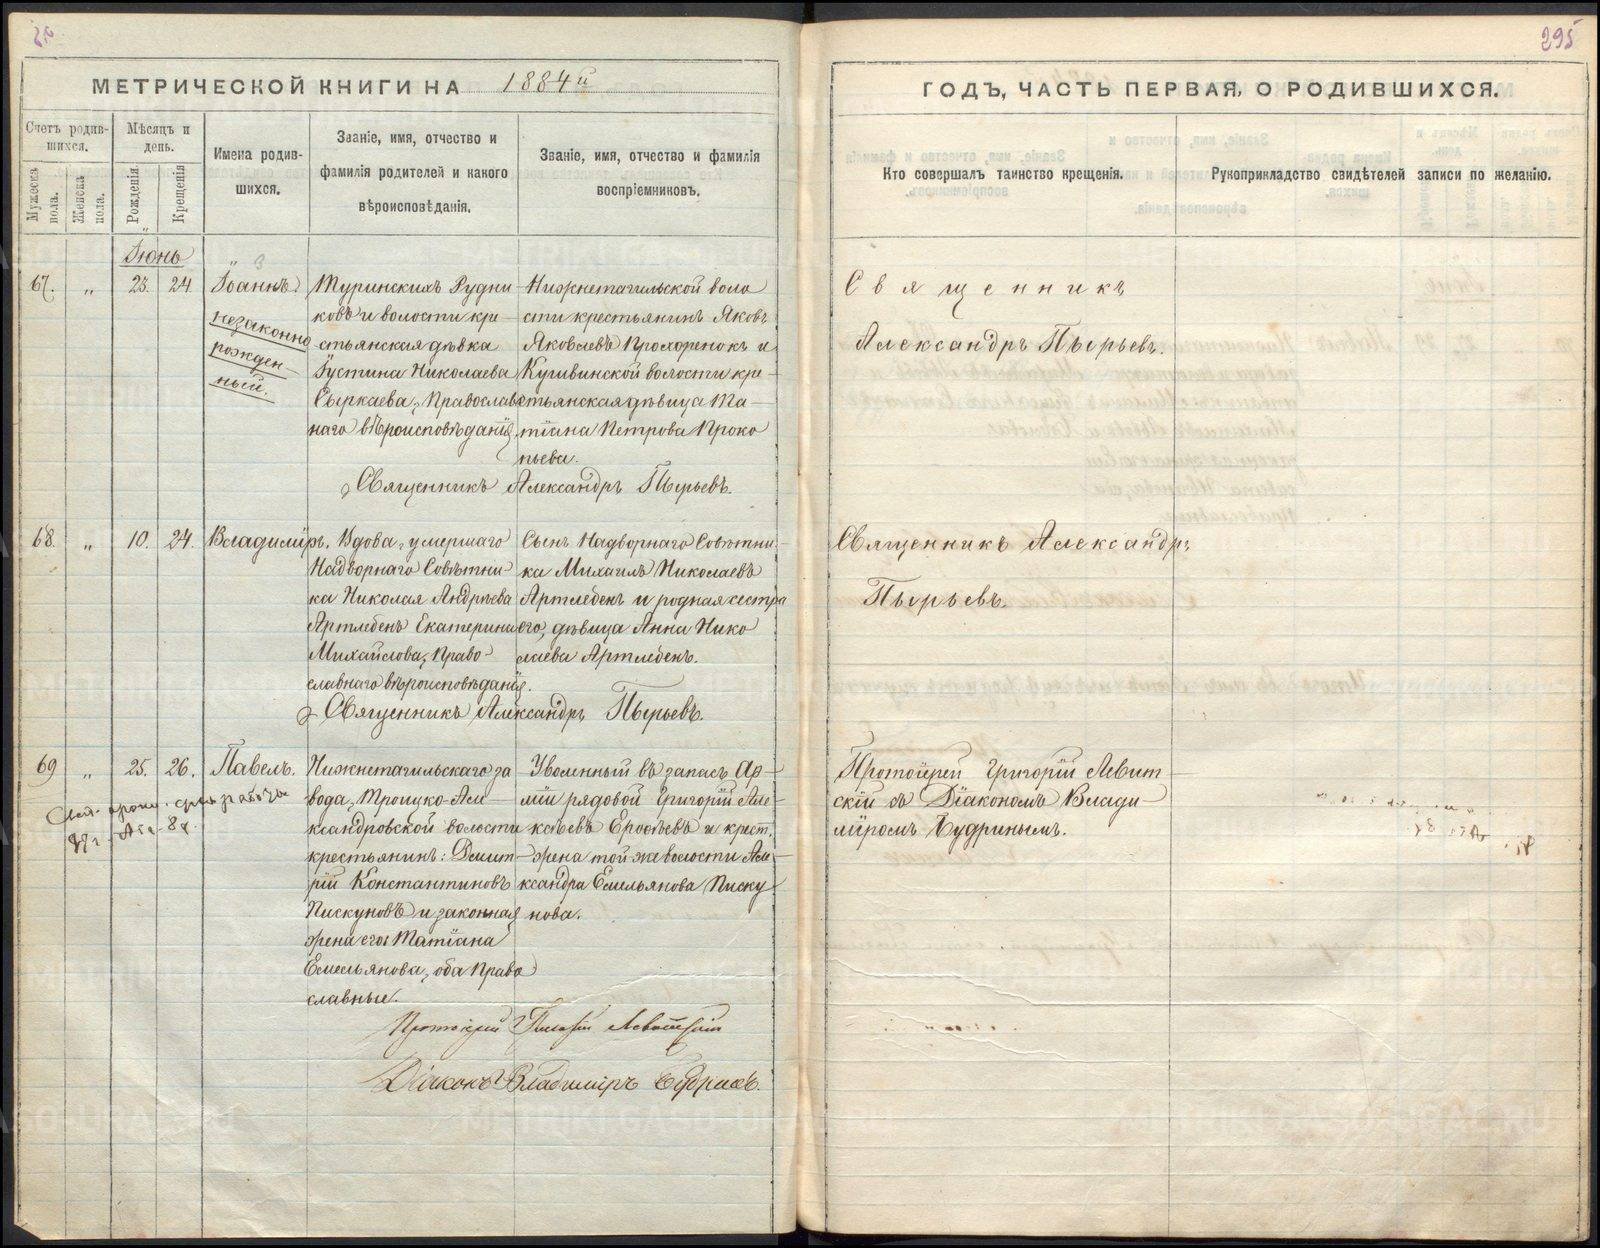 295
МЕТРИЧЕСКОЙ КНИГИ НА 1884й
ГОДЪ, ЧАСТЬ ПЕРВАЯ, О РОДИВШИХСЯ.
Счетъ родив-
шихся.
Мужеска пола.
Женска пола.
Мѣсяцъ и
день.
Рожденія.
Крещенія
Имена родив-
шихся.
Званіе, имя, отчество и
фамилія родителей и какого
вѣроисповѣданія.
Званіе, имя, отчество и фамилія
воспріемниковъ.
Кто совершалъ таинство крещенія.
Рукоприкладство свидѣтелей записи по желанію.
Іюнь
67. " 23. 24. Іоаннъ.
незаконно
рожден-
ный.
Туринскихъ Рудни
ковъ и волости кре-
стьянская дѣвка
Іустина Николаева
Сыркаева, Православ
наго вѣроисповѣданія.
Нижнетагильской воло
сти крестьянинъ Яковъ
Яковлевъ Прохоренокъ и
Кушвинской волости кре-
стьянская дѣвица Та-
тіана Петрова Проко
пьева.
Священникъ Александръ Пырьевъ.
Священникъ
Александръ Пырьевъ.
68. " 10. 24. Владиміръ.
Вдова, умершаго
Надворнаго Совѣтни-
ка Николая Андрѣева
Артлебенъ Екатерина
Михайлова, Право-
славнаго вѣроисповѣданія.
Сынъ Надворнаго Совѣтни-
ка Михаилъ Николаевъ
Артлебенъ и родная сестра
его, дѣвица Анна Нико
лаева Артлебенъ.
Священникъ Александръ Пырьевъ.
Священникъ Александръ
Пырьевъ.
69 " 25. 26. Павелъ.
Нижнетагильскаго за
вода, Троицко-Але-
ксандровской волости
крестьянинъ: Дмит-
рій Константиновъ
Пискуновъ и законная
жена его: Татіана
Емельянова, оба Право
славные.
Уволенный въ запасъ Ар-
міи рядовой Григорій Але-
ксѣевъ Ерофѣевъ и крест.
жена той же волости Але-
ксандра Емельянова Писку
нова.
Протоіерей Григорій Левит-
скій съ Діакономъ Влади-
міромъ Кудринымъ.
Протоіерей Григорій Левитскій
Діаконъ Владиміръ Кудринъ.